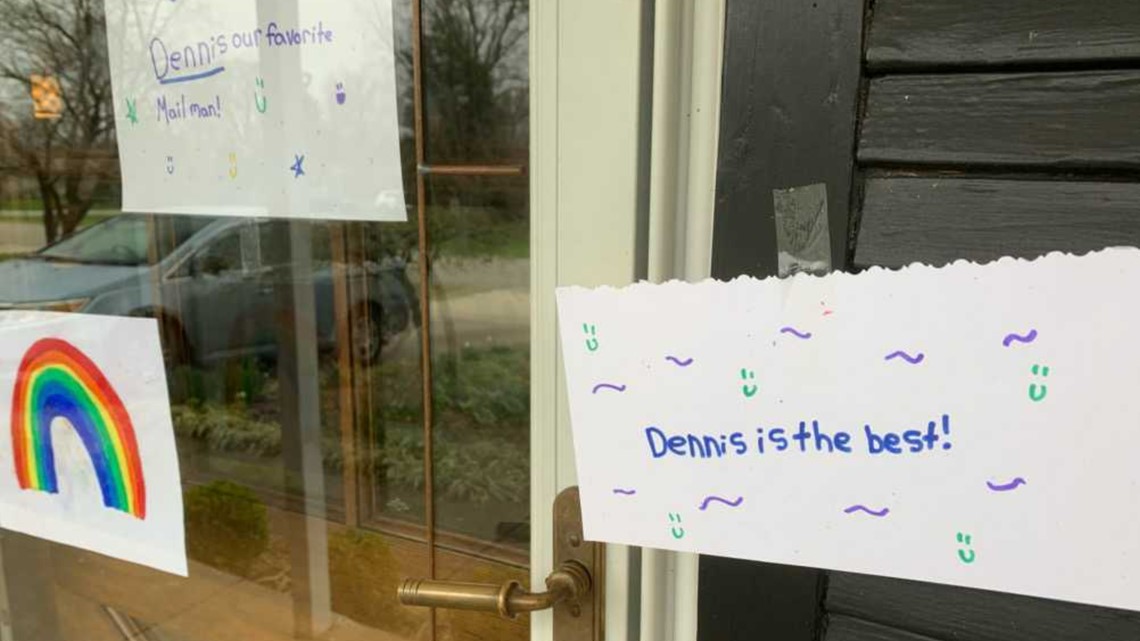 Dennis our favorite
Mail man!
Dennis is the best!